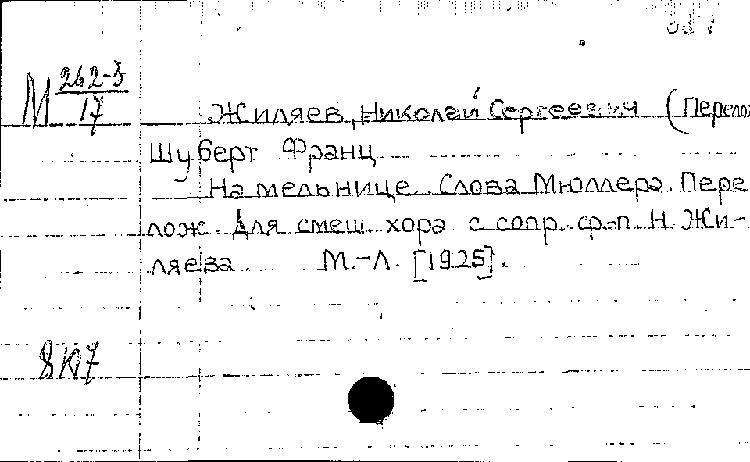 М 262-3
17
Жиляев, Николай Сергеевич (Перелож
Шуберт Франц
На мельнице. Слова Мюллера. Пере
лож. для смеш. хора с сопр. ф-п. Н. Жи-
ляева М.-Л. [1925].